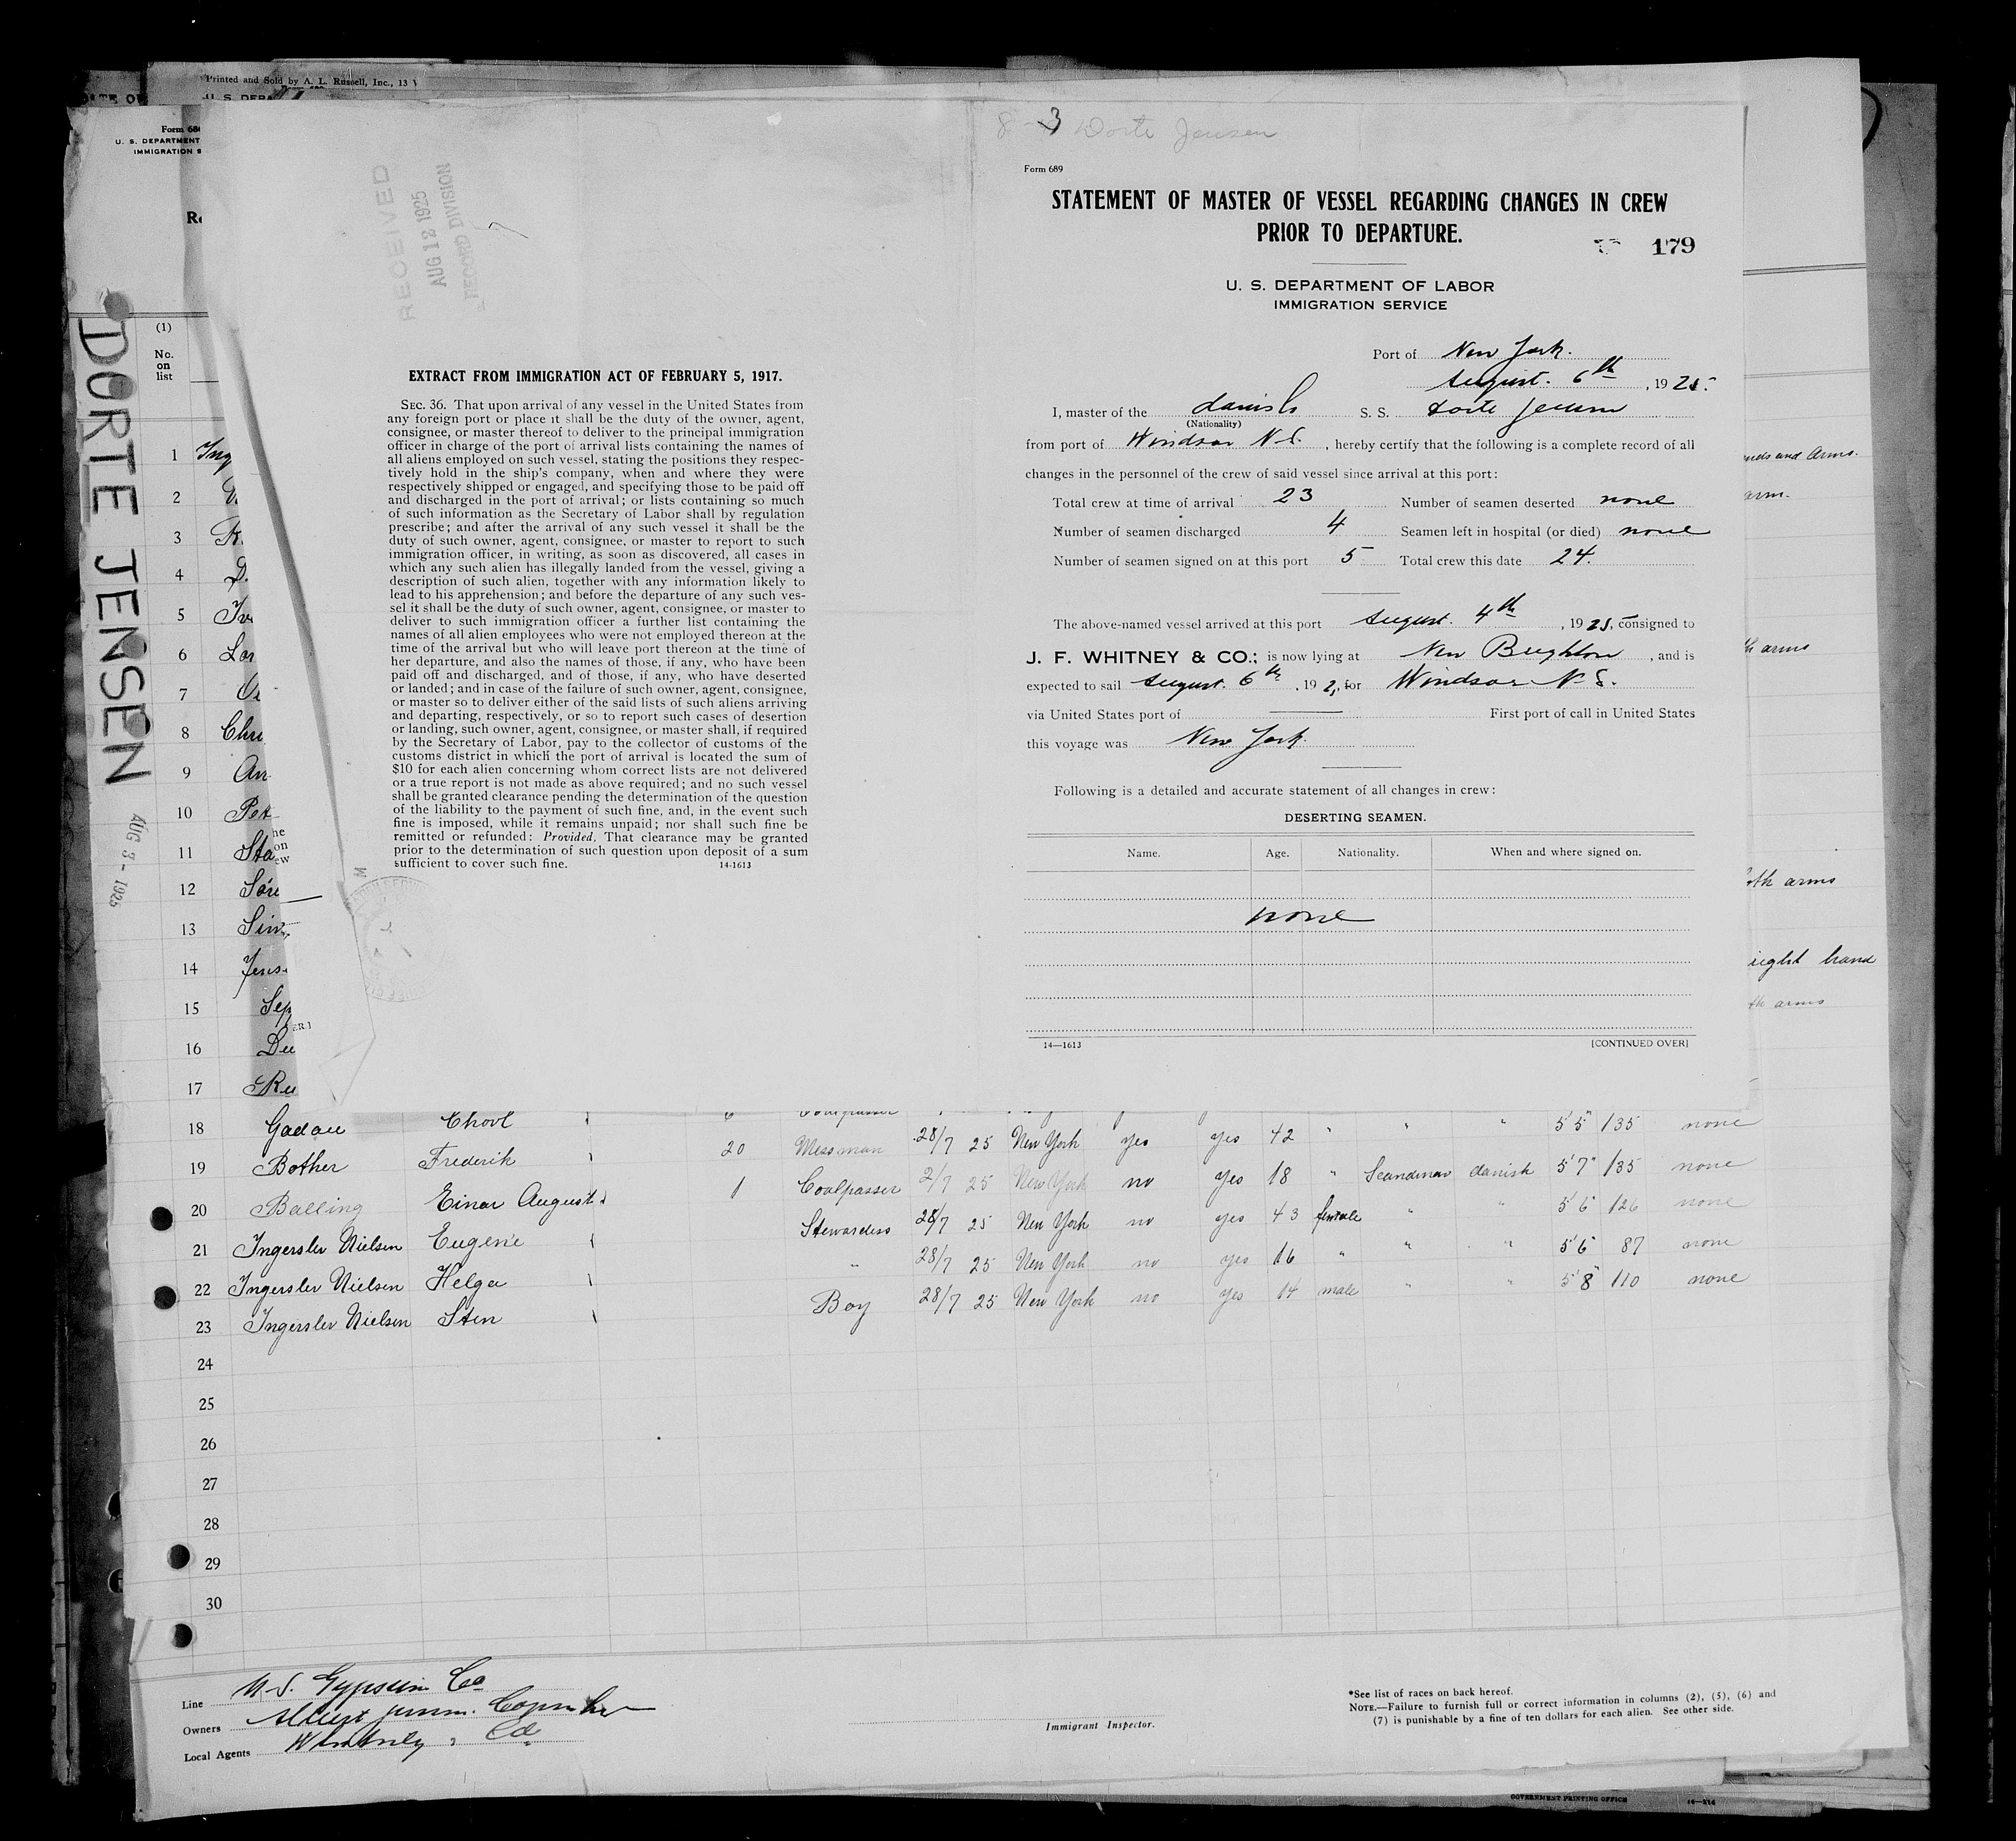 Printed and Sold by A. L. Russell, Inc., 13
U. S. DEPA
Form 68
U. S. DEPARTMENT
IMMIGRATION S
DORTE JENSEN
AUG 3 - 1925
RECEIVED
AUG 12 1925
RECORD DIVISION
EXTRACT FROM IMMIGRATION ACT OF FEBRUARY 5, 1917.
SEC. 36. That upon arrival of any vessel in the United States from
any foreign port or place it shall be the duty of the owner, agent,
consignee, or master thereof to deliver to the principal immigration
officer in charge of the port of arrival lists containing the names of
all aliens employed on such vessel, stating the positions they respec-
tively hold in the ship's company, when and where they were
respectively shipped or engaged, and specifying those to be paid off
and discharged in the port of arrival; or lists containing so much
of such information as the Secretary of Labor shall by regulation
prescribe; and after the arrival of any such vessel it shall be the
duty of such owner, agent, consignee, or master to report to such
immigration officer, in writing, as soon as discovered, all cases in
which any such alien has illegally landed from the vessel, giving a
description of such alien, together with any information likely to
lead to his apprehension; and before the departure of any such ves-
sel it shall be the duty of such owner, agent, consignee, or master to
deliver to such immigration officer a further list containing the
names of all alien employees who were not employed thereon at the
time of the arrival but who will leave port thereon at the time of
her departure, and also the names of those, if any, who have been
paid off and discharged, and of those, if any, who have deserted
or landed; and in case of the failure of such owner, agent, consignee,
or master so to deliver either of the said lists of such aliens arriving
and departing, respectively, or so to report such cases of desertion
or landing, such owner, agent, consignee, or master shall, if required
by the Secretary of Labor, pay to the collector of customs of the
customs district in which the port of arrival is located the sum of
$10 for each alien concerning whom correct lists are not delivered
or a true report is not made as above required; and no such vessel
shall be granted clearance pending the determination of the question
of the liability to the payment of such fine, and, in the event such
fine is imposed, while it remains unpaid; nor shall such fine be
remitted or refunded: Provided, That clearance may be granted
prior to the determination of such question upon deposit of a sum
sufficient to cover such fine. 14-1613
8-3 Dorte Jensen
Form 689
STATEMENT OF MASTER OF VESSEL REGARDING CHANGES IN CREW
PRIOR TO DEPARTURE.
179
U. S. DEPARTMENT OF LABOR
IMMIGRATION SERVICE
Port of New York.
August. 6th, 1925.
I, master of the danish S. S. Dorte Jensen
(Nationality)
from port of Windsor N.S., hereby certify that the following is a complete record of all
changes in the personnel of the crew of said vessel since arrival at this port:
Total crew at time of arrival 23 Number of seamen deserted none
Number of seamen discharged 4 Seamen left in hospital (or died) none
Number of seamen signed on at this port 5 Total crew this date 24.
The above-named vessel arrived at this port August. 4th, 1925, consigned to
J. F. WHITNEY & CO.; is now lying at New Brighton, and is
expected to sail August. 6th, 192, for Windsor N.S.
via United States port of First port of call in United States
this voyage was New York.
Following is a detailed and accurate statement of all changes in crew:
DESERTING SEAMEN.
Name. Age. Nationality. When and where signed on.
none
14—1613 [CONTINUED OVER]
(1)
No.
on
list
1 Ing
2
3 K.
4 D.
5 Iv
6 Lar
7
8 Chri
9 An
10 Pet
11 Sta
12 Söre
13 Sim
14 Jens
15 Sep
16 Du
17 Ru
nds and Arms.
arm.
th arms
oth arms
right hand
th arms
18 Gadau Chool 6 Coalpasser
19 Bother Frederik 20 Messman 28/7 25 New York yes yes 42 " " " 5'5" 135 none
20 Balling Einar August 1 Coalpasser 2/7 25 New York no yes 18 " Scandinav danish 5'7" 135 none
21 Ingerslev Nielsen Eugenie Stewardess 28/7 25 New York no yes 43 female " " 5'6 126 none
22 Ingerslev Nielsen Helga " 28/7 25 New York no yes 16 " " " 5'6 87 none
23 Ingerslev Nielsen Sten Boy 28/7 25 New York no yes 14 male " " 5'8" 110 none
24
25
26
27
28
29
30
Line U.S. Gypsum Co
Owners Albert Jensen. Copenh
Local Agents Whitney & Co
Immigrant Inspector.
*See list of races on back hereof.
NOTE.—Failure to furnish full or correct information in columns (2), (5), (6) and
(7) is punishable by a fine of ten dollars for each alien. See other side.
GOVERNMENT PRINTING OFFICE